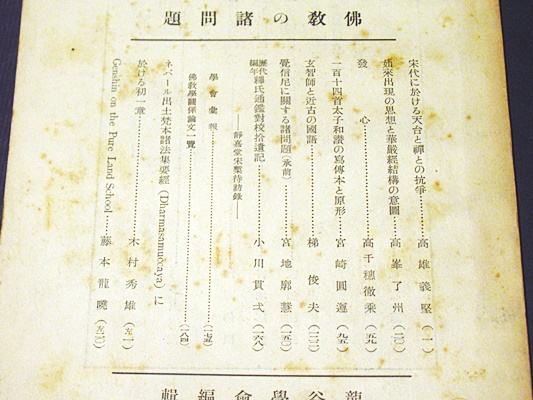 佛教の諸問題
宋代に於ける天台と禪との抗爭……高雄義堅（一）
如來出現の思想と華嚴經結構の意圖……高峯了州（二〇）
發心……高千穗徹乘（五九）
一百十四首太子和讃の寫傳本と原形……宮崎圓遵（九五）
玄智師と近古の國語……梯俊夫（一三一）
覺信尼に關する諸問題（承前）……宮地廓慧（一五〇）
歷代編年釋氏通鑑對校拾遺記……小川貫弌（一六八）
――靜嘉堂宋槧侍訪錄――
學會彙報……（一七五）
佛敎學關係論文一覽……（一八四）
ネパール出土梵本諸法集要經（Dharmasamuccaya）に
於ける初一章……木村秀雄（左一）
Genshin on the Pure Land School……藤本龍曉（左二三）
龍谷學會編輯